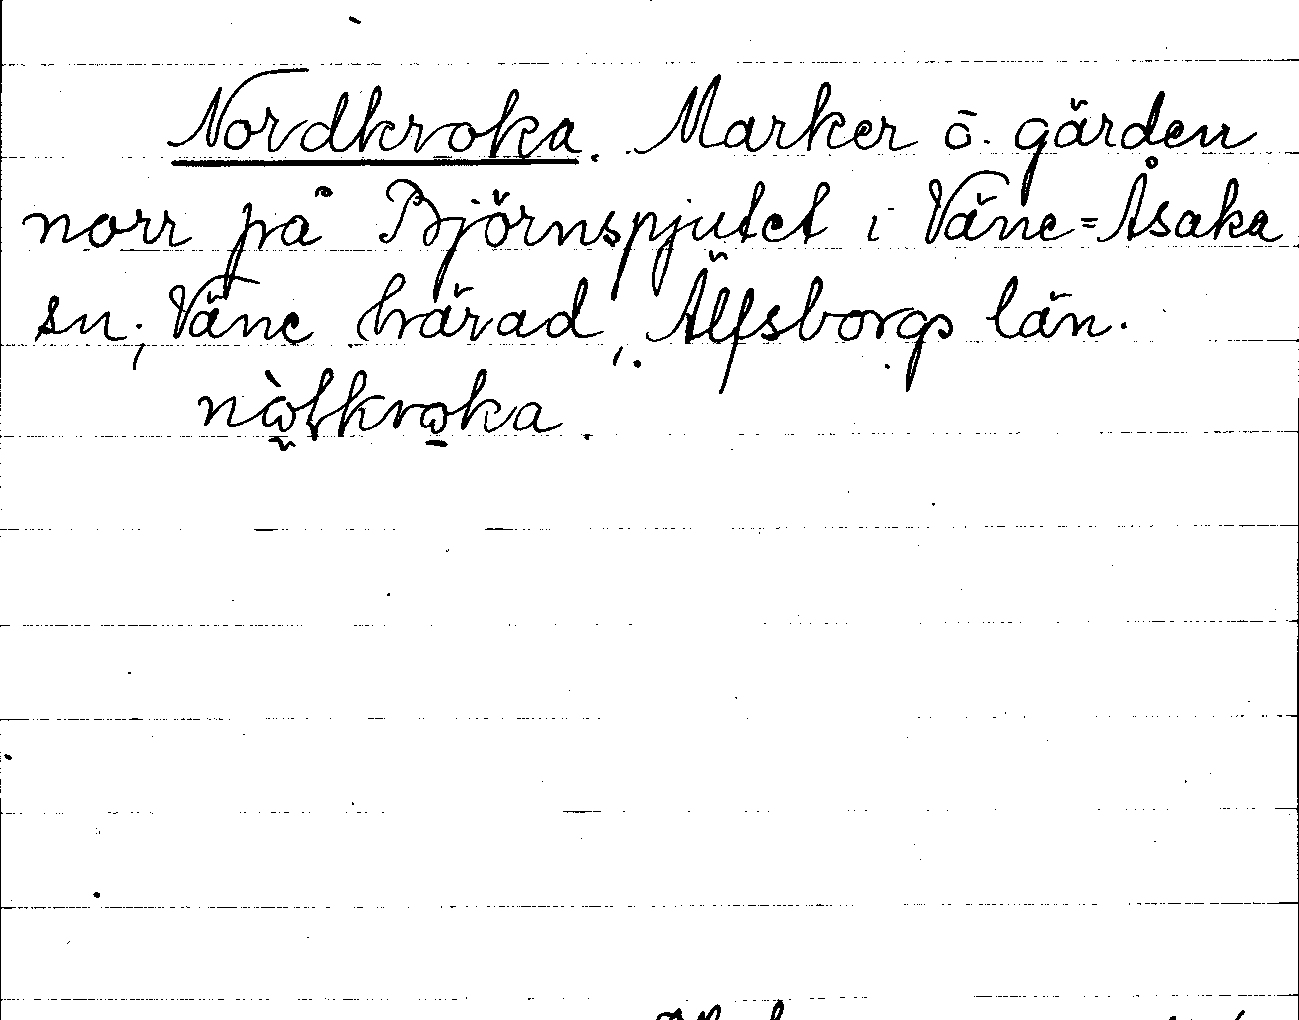 Nordkroka. Marker ö. gärden
norr på Björnspjutet i Väne=Åsaka
sn, Väne härad, Älfsborgs län.